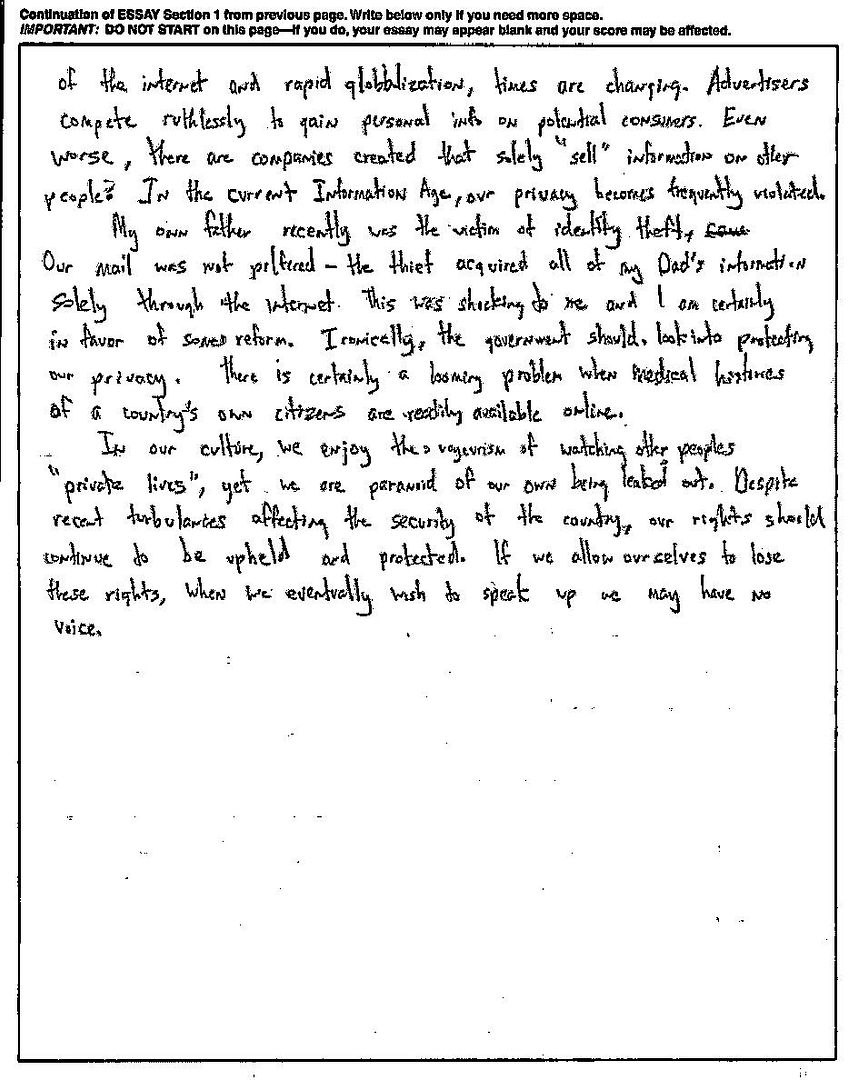 Continuation of ESSAY Section 1 from previous page. Write below only if you need more space.
IMPORTANT: DO NOT START on this page—if you do, your essay may appear blank and your score may be affected.
of the internet and rapid globblization, times are changing. Advertisers
compete ruthlessly to gain personal info on potential consumers. Even
worse, there are companies created that solely "sell" information on other
people? In the current Information Age, our privacy becomes frequently violated.
My own father recently was the victim of identity theft,
Our mail was not pilfered – the thief acquired all of my Dad's information
solely through the internet. This was shocking to me and I am certainly
in favor of some reform. Ironically, the government should look into protecting
our privacy. There is certainly a looming problem when medical histories
of a country's own citizens are readily available online.
In our culture, we enjoy the voyeurism of watching other peoples
"private lives", yet we are paranoid of our own being leaked out. Despite
recent turbulantes affecting the security of the country, our rights should
continue to be upheld and protected. If we allow ourselves to lose
these rights, when we eventually wish to speak up we may have no
voice.